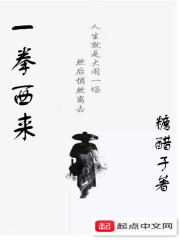 一拳西来
人生就是大闹一场
然后悄然离去
糖醋子著
起点中文网